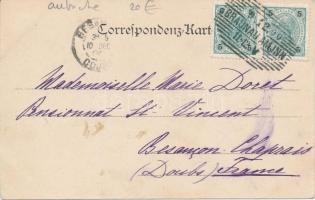 autriche 20 £
Correspondenz-Karte
5 5
BRAUNAU
Mademoiselle Marie Doret
Pensionnat St-Vincent
Besançon Chaprais
(Doubs) France